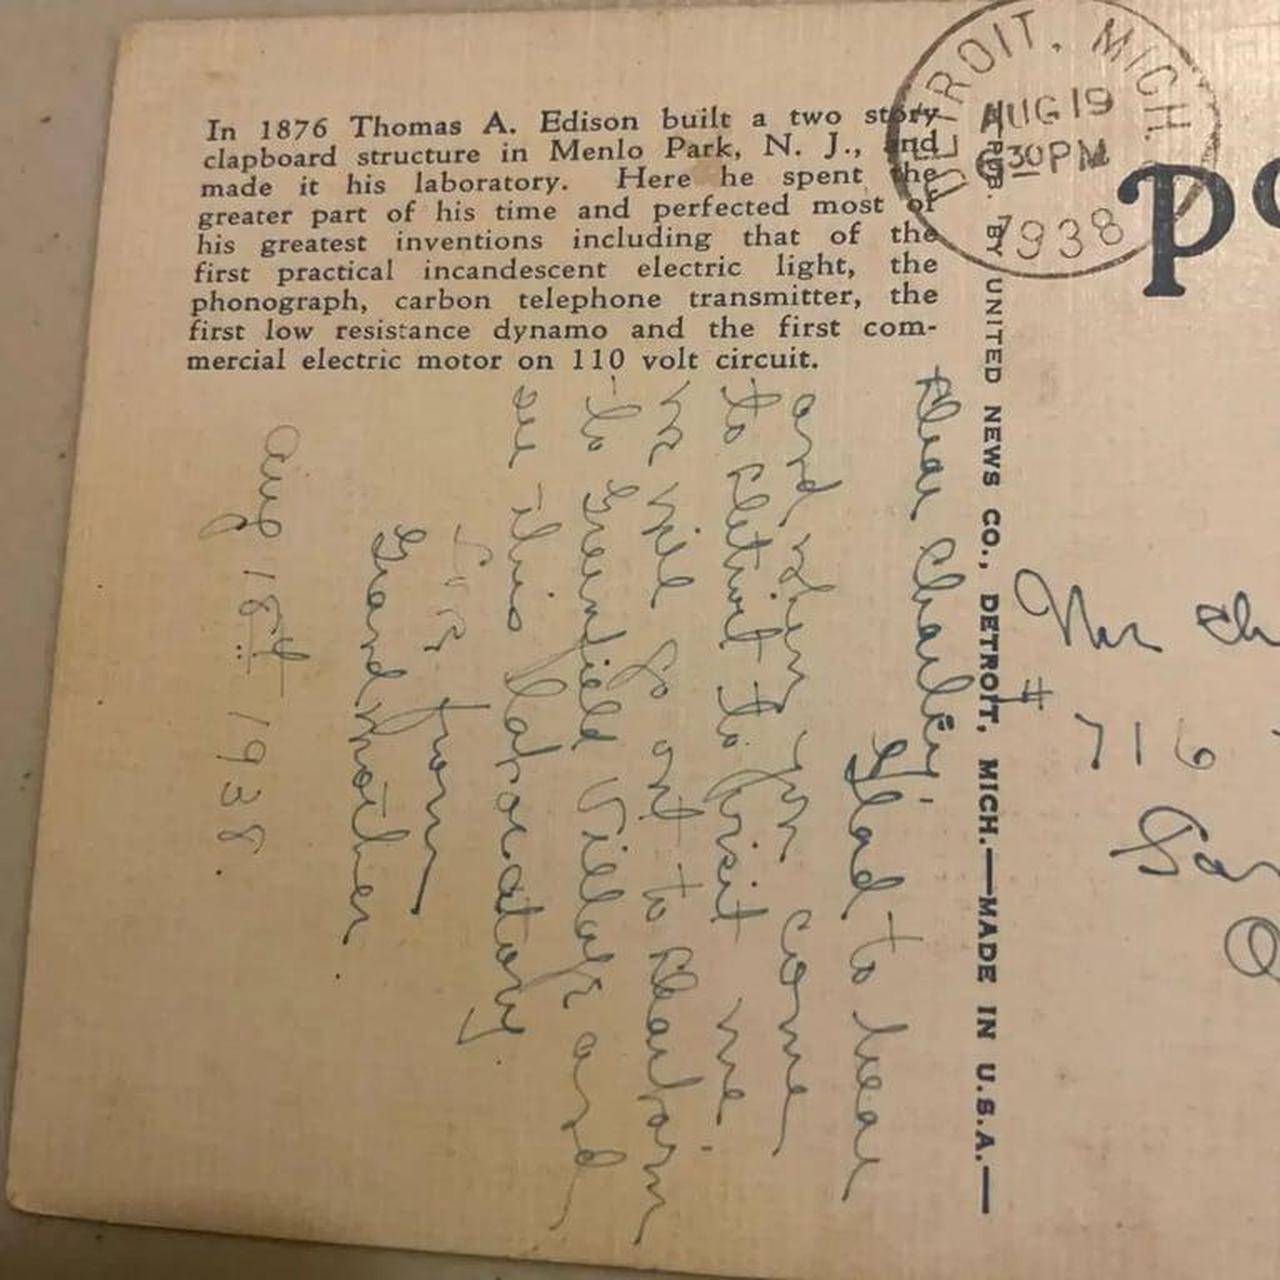 In 1876 Thomas A. Edison built a two story
clapboard structure in Menlo Park, N. J., and
made it his laboratory. Here he spent the
greater part of his time and perfected most of
his greatest inventions including that of the
first practical incandescent electric light, the
phonograph, carbon telephone transmitter, the
first low resistance dynamo and the first com-
mercial electric motor on 110 volt circuit.
DETROIT, MICH.
AUG 19
6 30 PM
1938
PUB. BY UNITED NEWS CO., DETROIT, MICH.—MADE IN U.S.A.—
Dear Charley,
Glad to hear
and when you come
to Detroit to visit me.
we will go out to Dearborn
to Greenfield Village and
see this laboratory.
Love from
Grandmother
Aug 18th 1938.
PO
Mr Ch
# 716
Gar
O